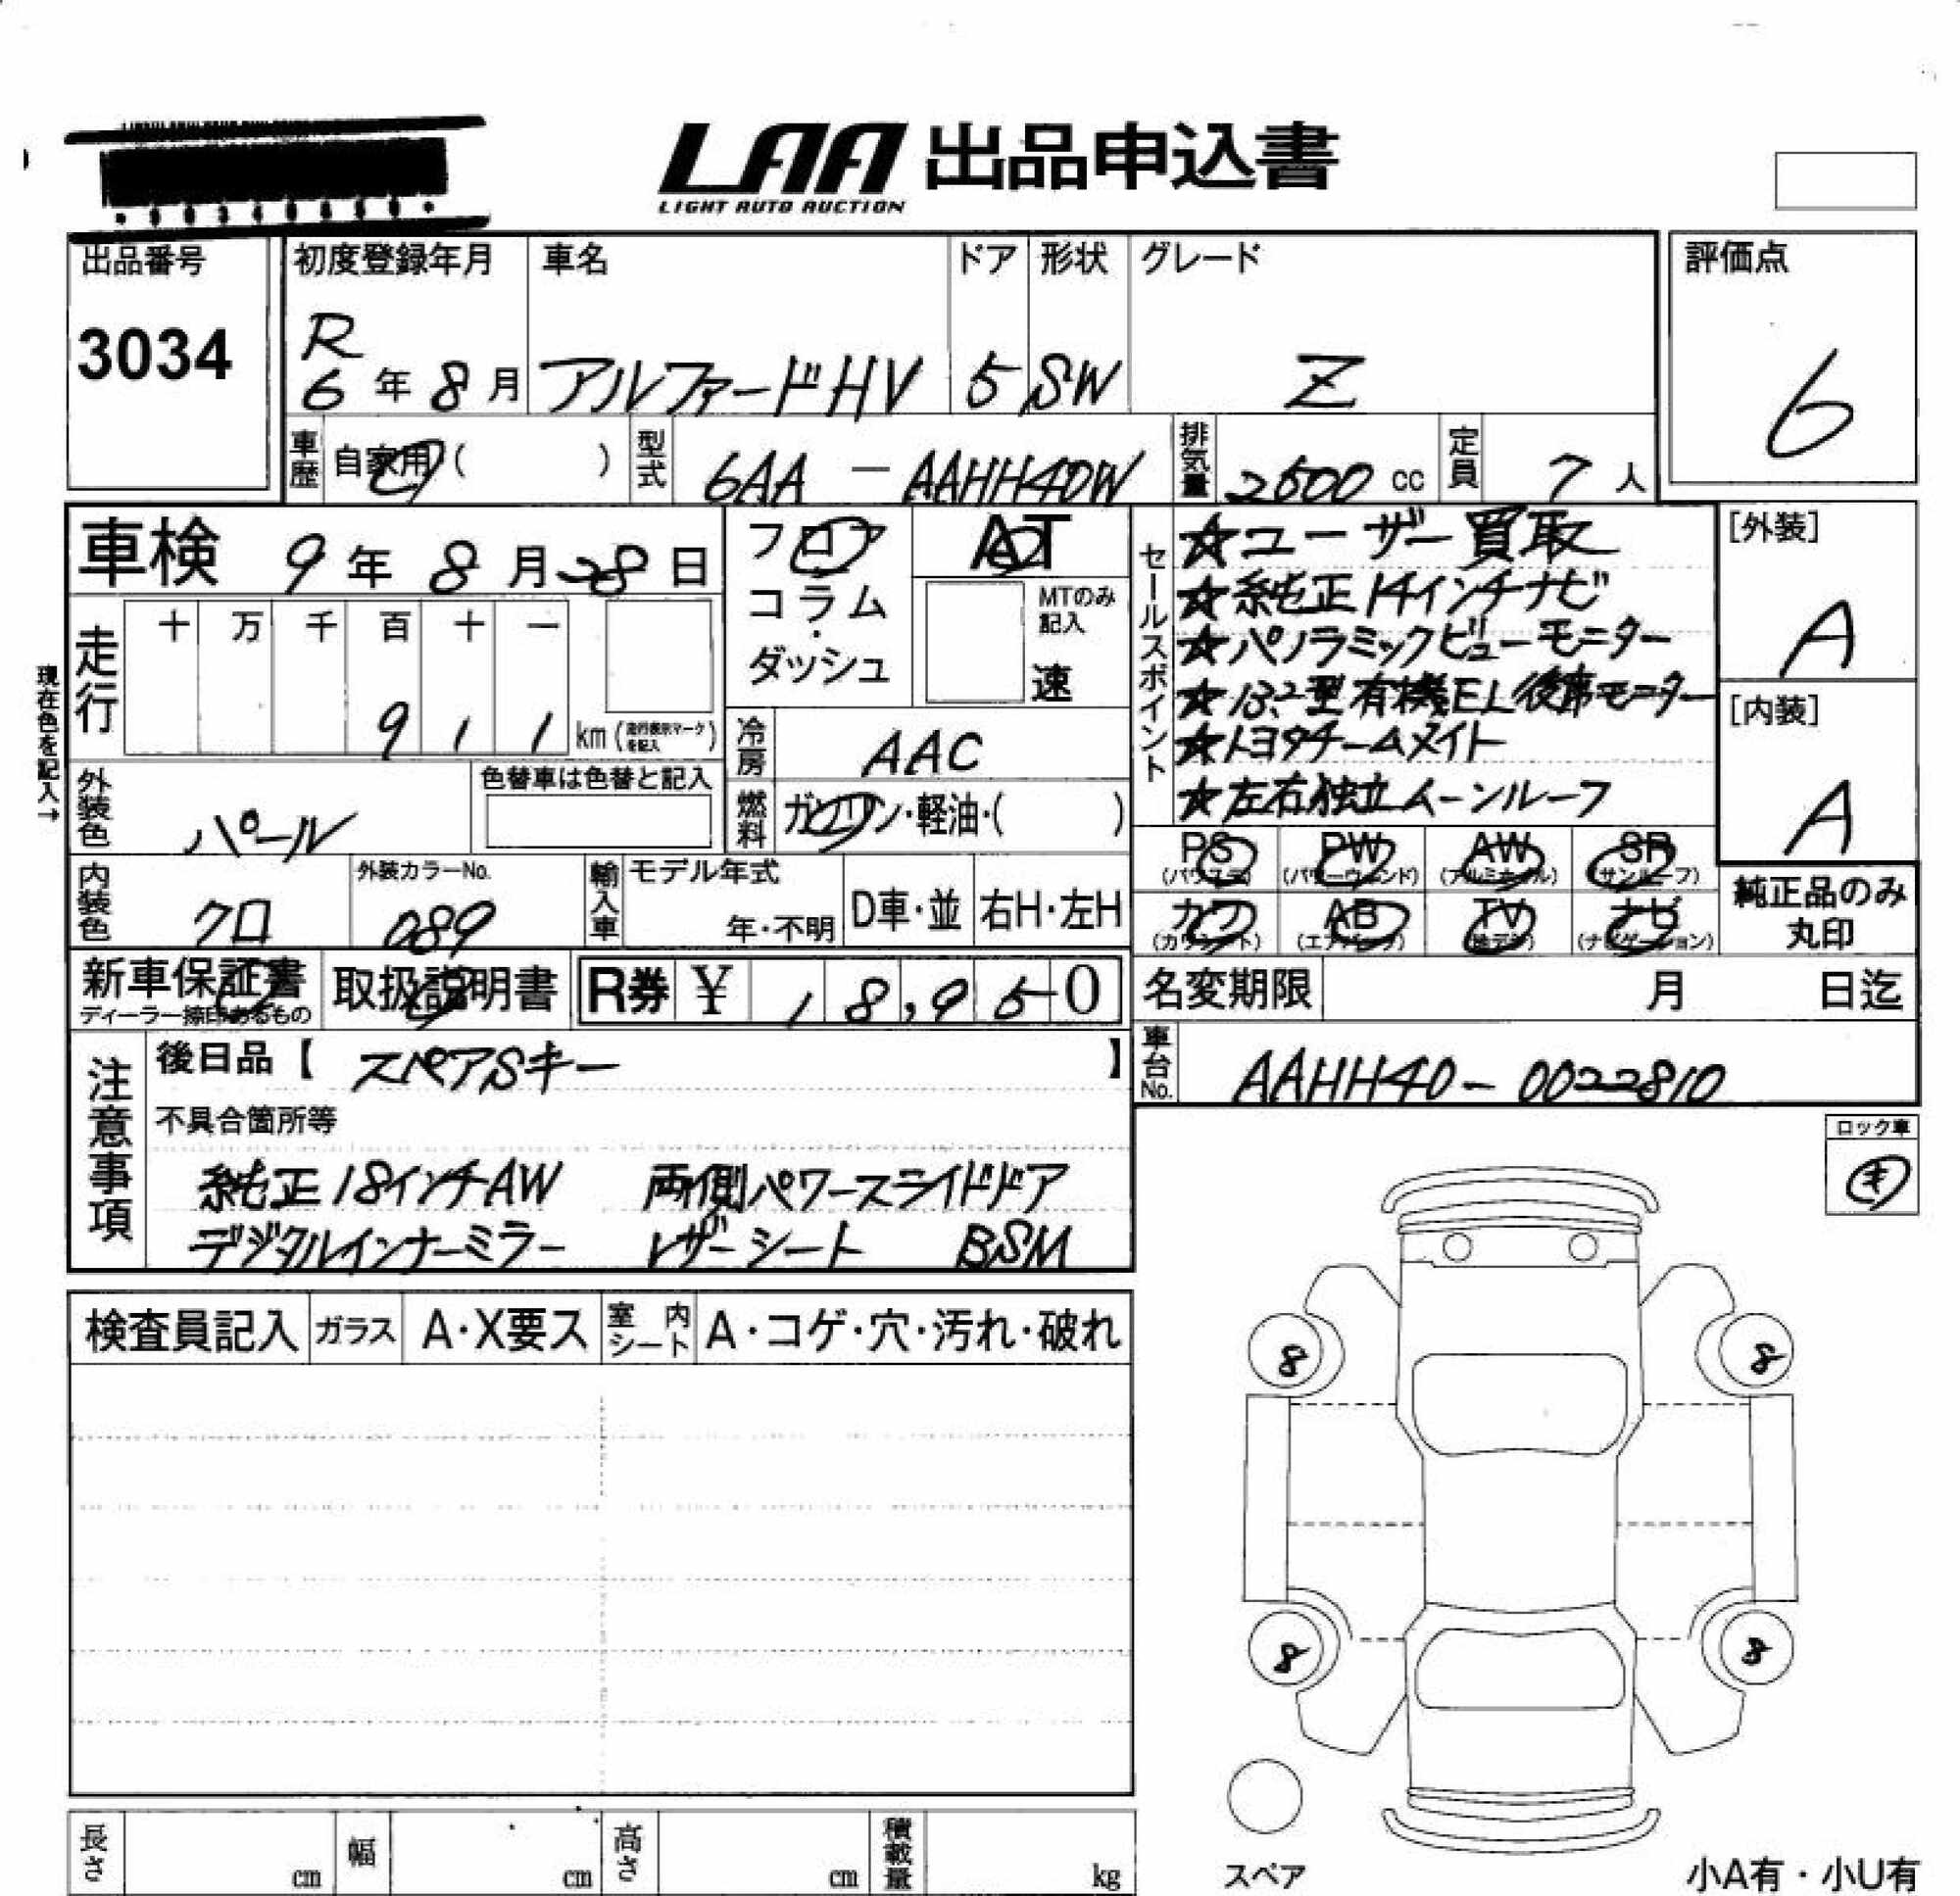 LAA 出品申込書
LIGHT AUTO AUCTION
出品番号 初度登録年月 車名 ドア 形状 グレード 評価点
3034 R 6年 8月 アルファードHV 5 SW Z 6
車歴 自家用( ) 型式 6AA － AAHH40W 排気量 2500 cc 定員 7 人
車検 9年 8月 28日
フロア コラム・ダッシュ
AT
MTのみ記入 速
現在色を記入→
走行 十 万 千 百 十 一
9 1 1 km(走行表示マークを記入)
冷房 AAC
燃料 ガソリン・軽油・( )
外装色 パール 色替車は色替と記入
内装色 クロ 外装カラーNo. 089
輸入車 モデル年式 年・不明 D車・並 右H・左H
セールスポイント
☆ユーザー買取
☆純正14インチナビ
☆パノラミックビューモニター
☆13.2型有機EL後席モニター
☆トヨタチームメイト
☆左右独立ムーンルーフ
[外装] A
[内装] A
PS (パワステ) PW (パワーウィンド) AW (アルミホイル) SR (サンルーフ)
カワ (カワシート) AB (エアバック) TV (地デジ) ナビ (ナビゲーション)
純正品のみ丸印
新車保証書 ディーラー捺印あるもの 取扱説明書 R券 ¥ 18,950
名変期限 月 日迄
車台No. AAHH40－0022810
注意事項
後日品【 スペアSキー 】
不具合箇所等
純正18インチAW 両側パワースライドドア
デジタルインナーミラー レザーシート BSM
ロック車
検査員記入 ガラス A・X要ス 室内シート A・コゲ・穴・汚れ・破れ
8 8
8 8
長さ cm 幅 cm 高さ cm 積載量 kg
スペア
小A有・小U有